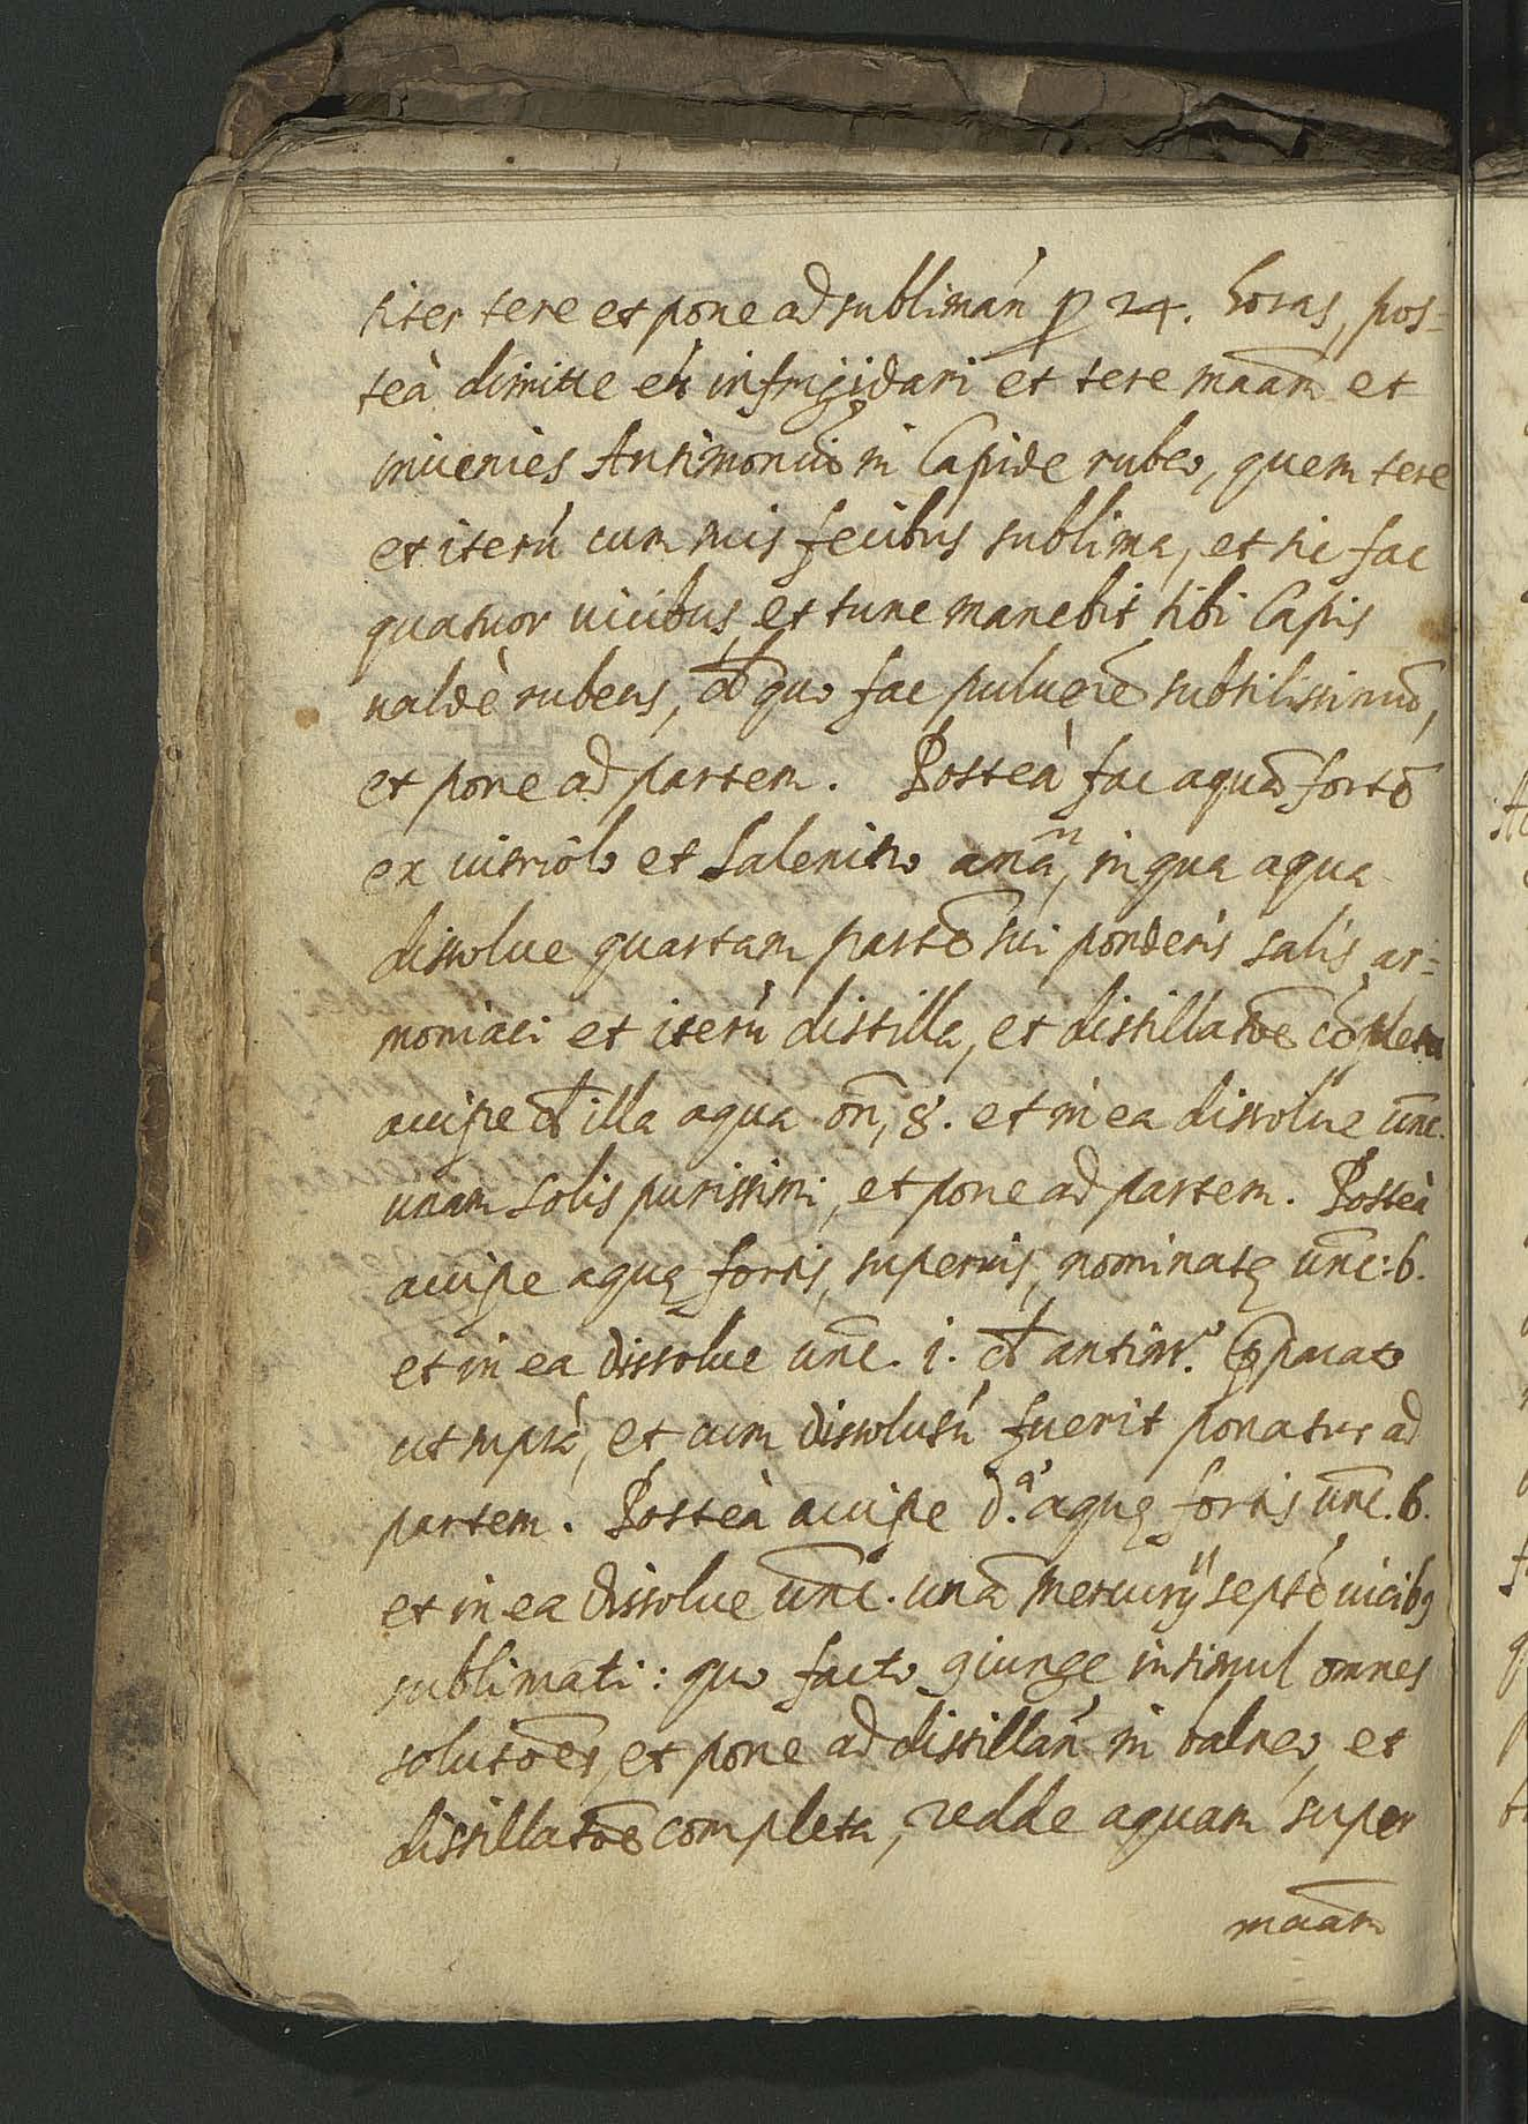 liter tere et pone ad sublimań p 24. horas, pos=
teà dimitte eū infrigidari et tere maām et
inuenies Antimoniū in lapide rubeo, quem tere
et iterú cum suis fecibus sublima, et sic fac
quatuor uicibus, et tunc manebit tibi lapis
ualdè rubens, đ quo fac puluerē subtilissimū,
et pone ad partem. Posteà fac aquā fortē
ex uitriolo et Salenitro anã, in qua aqua
dissolue quartam partē sui ponderis salis ar=
moniaci et iterú distilla, et distillatōe cōpleta
accipe đ illa aqua oñ, 8. et in ea dissolue unc̄.
unam solis purissimi, et pone ad partem. Posteà
accipe aquę fortis, superius, nominatę unc̄: 6.
et in ea dissolue unc̄. i. đ antimo. p̱parato
ut suprà, et cum dissolutú fuerit ponatur ad
partem. Posteà accipe d.ª aquę fortis unc̄. 6.
et in ea dissolue unc̄. unā mercurij septē uicibꝫ
sublimati: quo facto giunge insimul omnes
solutōes, et pone ad distillań in balneo, et
distillatōe completa, redde aquam super
maām